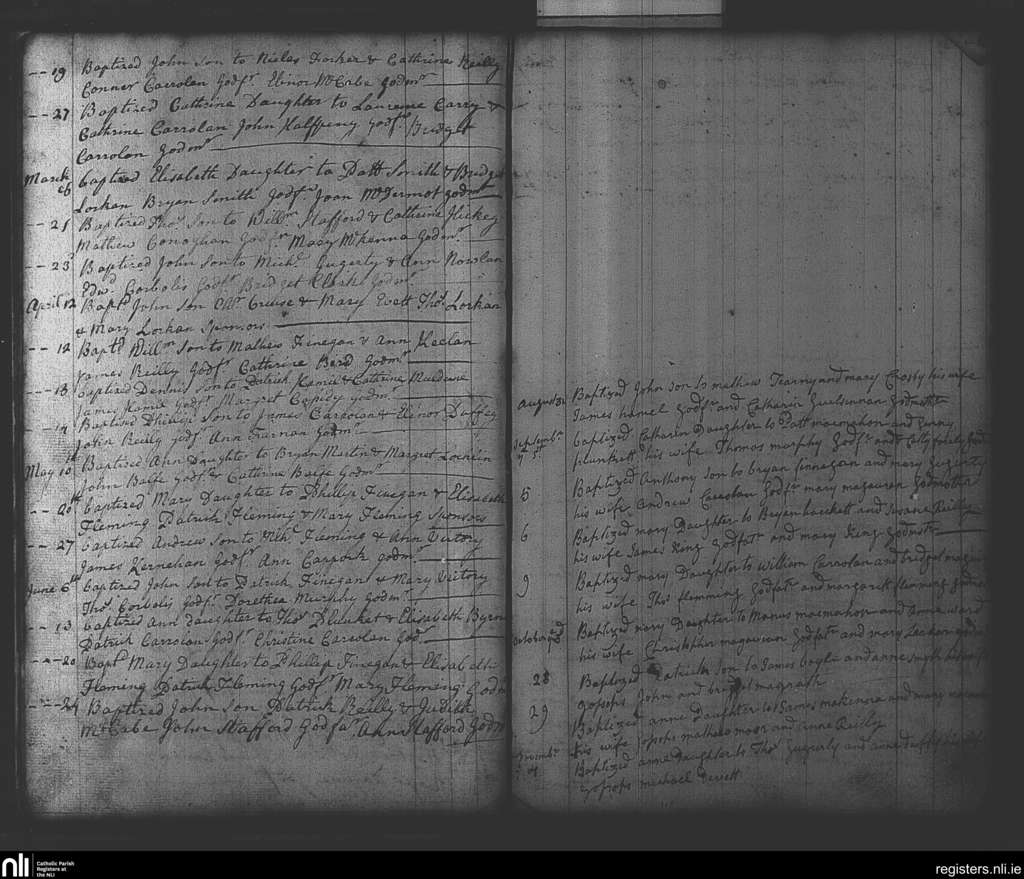 -- 19 Baptized John Son to Nicles Farker & Cathrine Reilly
Conner Carolan Godfr. Elinor McCabe Godmr
-- 27 Baptized Cathrine Daughter to Laurence Carry &
Cathrine Carrolan John Halfpeny Godfr Bridget
Carrolan Godmr
March 6 Baptized Elisabeth Daughter to Patt Smith & Bridget
Lorkan Bryan Smith Godfr. Joan McDermot Godmr
-- 21 Baptized Thos. Son to Willm Stafford & Cathrine Hickey
Mathew Conaghan Godfr. Mary McKenna Godmr.
-- 23 Baptized John Son to Michl. Gugerty & Ann Nowlan
Edwd Corbolis Godfr Bridget Clarke Godmr.
April 12 Bapt. John Son Olr. Cruise & Mary Evatt Thos. Lorkan
& Mary Lorkan Sponsors
-- 12 Baptd Willm Son to Mathew Finegan & Ann Keelan
James Reilly Godfr Cathrine Bird Godmr
-- 13 Baptized Dennis Son to Patrick Kamie & Cathrine Muldune
James Kamie Godfr Margret Godmr
-- 14 Baptized Phillip Son to James Carrolan & Elinor Duffey
John Reilly Godfr. Ann Farnan Godmr
May 10th Baptized Ann Daughter to Bryan Martin & Margret
John Balfe Godfr. & Cathrine Balfe Godmr
-- 20th Baptized Mary Daughter to Phillip Finegan & Elisabeth
Fleming Patrick Fleming & Mary Fleming Sponsors
-- 27 Baptized Andrew Son to Fleming & Ann Victory
James Kernehan Godfr. Ann Godmr
June 6th Baptized John Son to Patrick Finegan & Mary Victory
Thos. Corbolis Godfr. Dorethea Murphy Godmr
-- 13 Baptized Ann Daughter to Thos Plunket & Elisabeth Byrne
Patrick Carrolan Godfr. Christine Carolan Godr
-- 20 Bapt. Mary Daughter to Phillip Finegan & Elisabeth
Fleming Patrick Fleming Godfr. Mary Fleming Godm
-- 24 Baptized John Son Patrick Reilly & Judith
McCabe John Stafford Godfar. Ann Stafford Godm
August 31 Baptized John son to mathew Tearny and mary Crosby his wife
James hamel Godfr and Catharin Godmother
Septembr 1st baptized Catharin Daughter to Patt macmahon and
plunkett his wife Thomas murphy Godfr and
5 Baptized Anthony son to bryan finnagan and mary Gugurty
his wife Andrew Carolan Godfr mary magauran Godmother
6 Baptized mary Daughter to Bryan hackett and Susane Reilly
his wife James King Godfatr and mary King Godmotr
9 Baptized mary Daughter to William Carraolan and bridget
his wife Thos flemming Godfatr and margarit flemming
October 3d Baptized mary Daughter to Manus macmahon and anne ward
his wife Christopher magauran Godfatr and mary Larkan
28 Baptized Patrick son to James boyle and anne smyth his wife
gossops John and bridget magrath
29 Baptized anne Daughter to James makenna and mary
his wife gossops mathew moor and anne Reilly
Novembr 4 Baptized anne Daughter to Thos Gugerty and anne duffy his wife
gossops michael
nli
Catholic Parish
Registers at
the NLI
registers.nli.ie